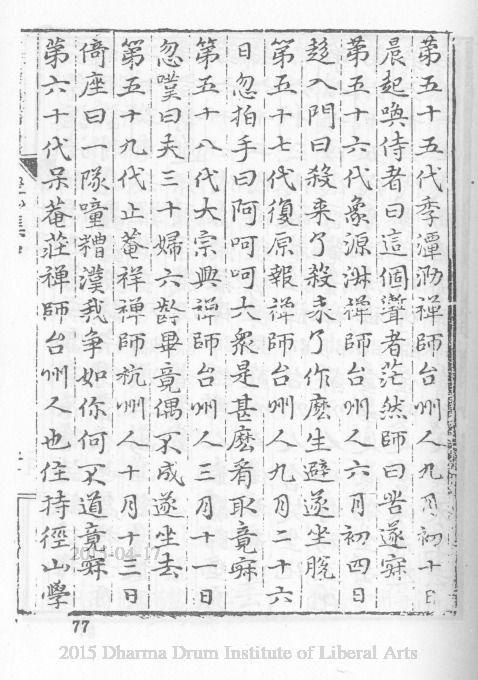 第五十五代季潭泐禪師台州人九月初十日
晨起喚侍者曰這個聻者茫然師曰咨遂寂
第五十六代象源淋禪師台州人六月初四日
趍入門曰殺来了殺来了作麽生避遂坐脫
第五十七代復原報禅師台州人九月二十六
日忽拍手曰阿呵呵大衆是甚麽看取竟寂
第五十八代大宗興禅師台州人三月十一日
忽嘆曰夫三十婦六齡畢竟偶不成遂坐去
第五十九代止菴祥禪師杭州人十月十三日
倚座曰一隊噇糟漢我争如你何不道竟寂
第六十代呆菴莊禅師台州人也住持徑山學
77
2015 Dharma Drum Institute of Liberal Arts